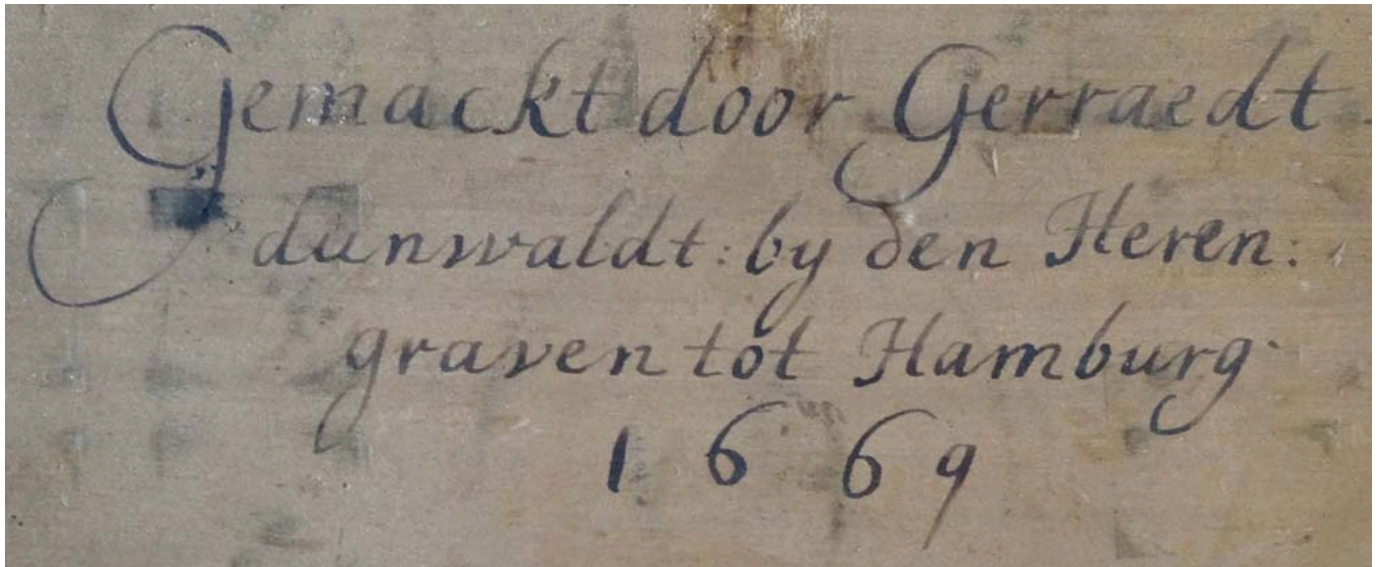 Gemackt door Gerraedt
dunwaldt: by den Heren:
graven tot Hamburg
1669